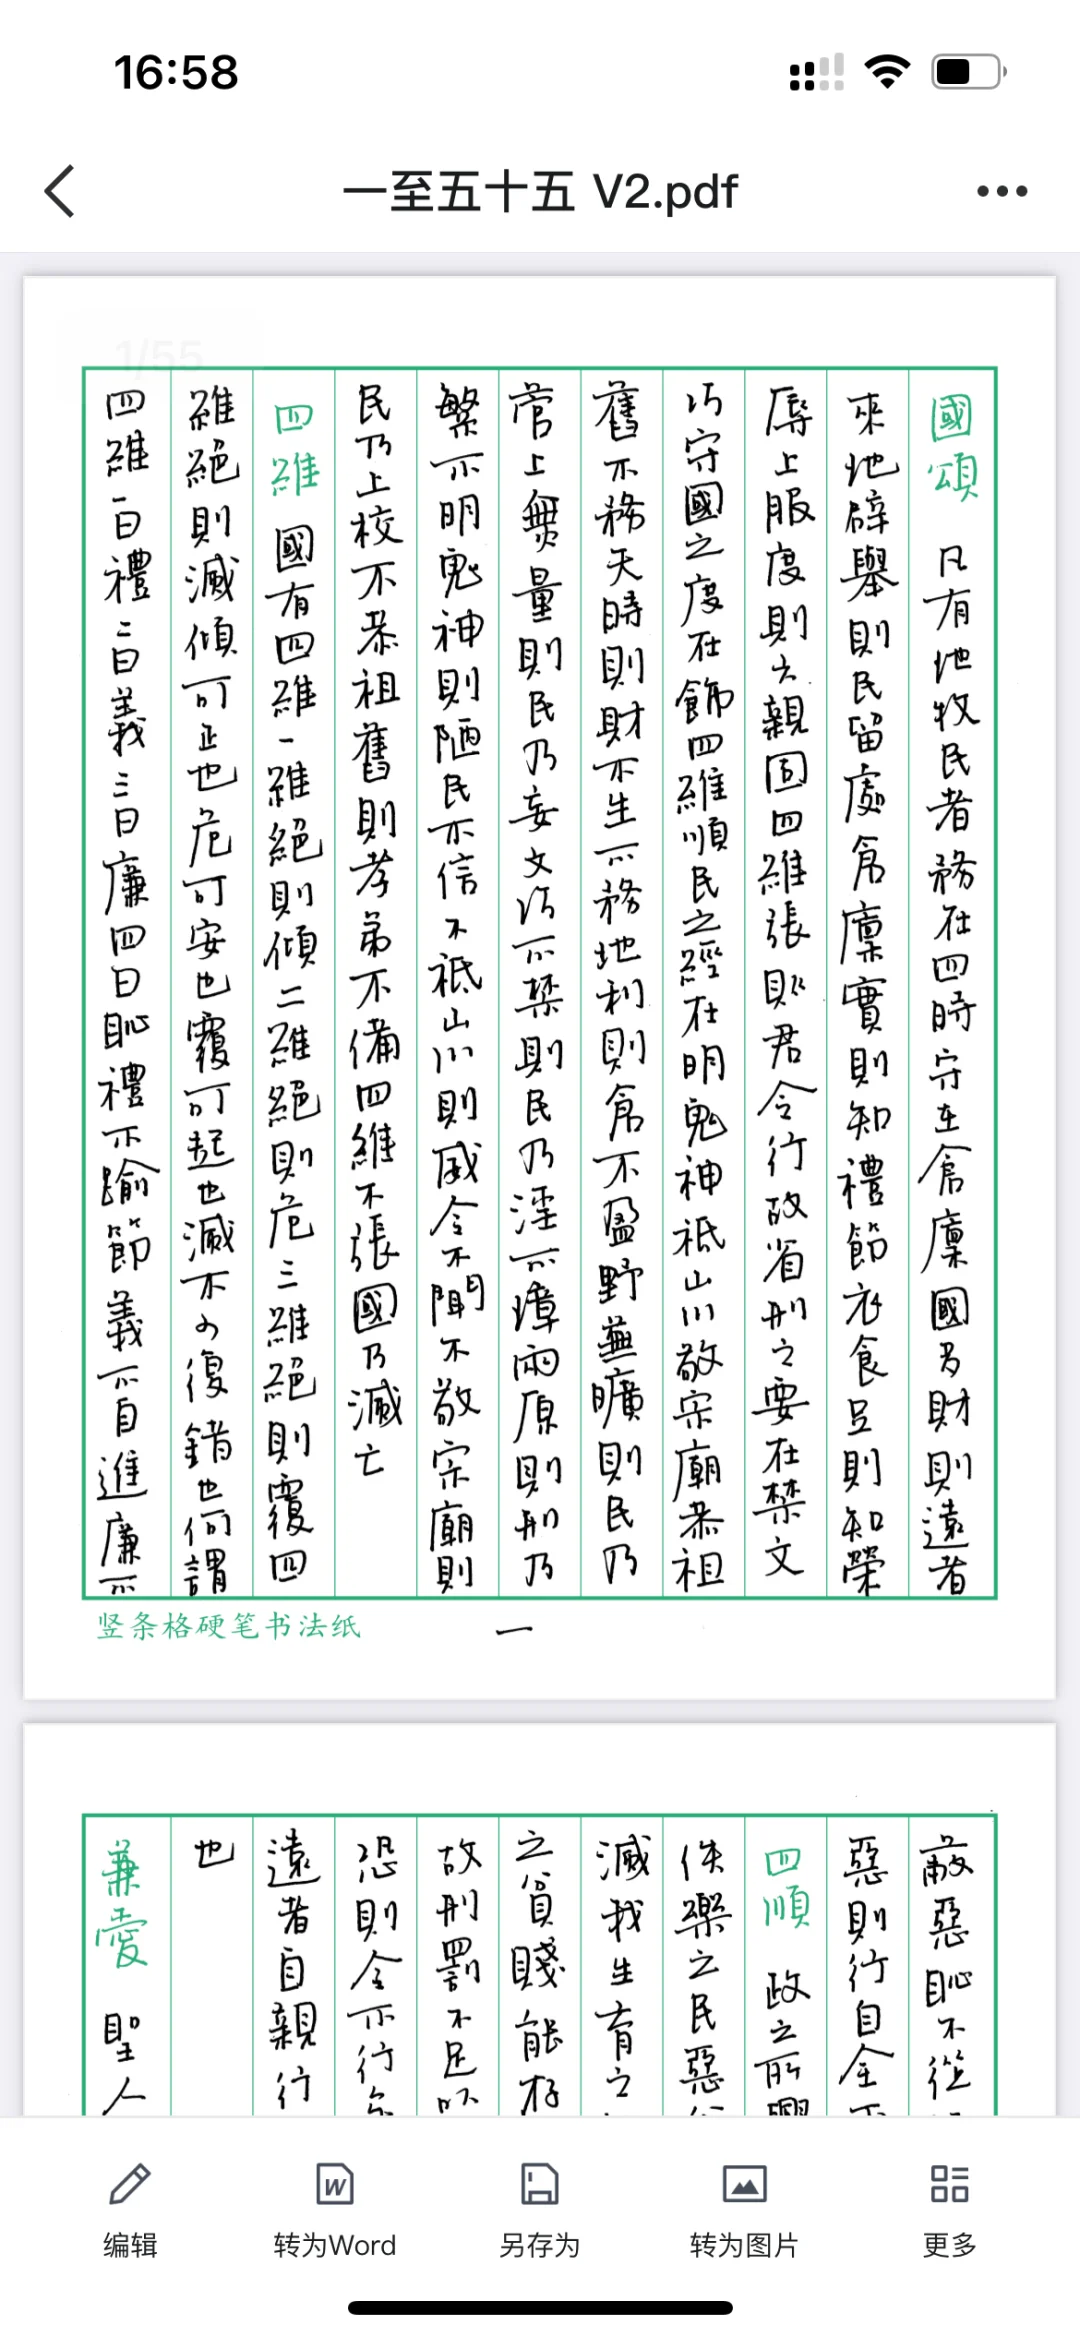 16:58
一至五十五 V2.pdf
1/55
國頌 凡有地牧民者務在四時守在倉廩國多財則遠者
來地辟舉則民留處倉廩實則知禮節衣食足則知榮
辱上服度則六親固四維張則君令行故省刑之要在禁文
巧守國之度在飾四維順民之經在明鬼神祗山川敬宗廟恭祖
舊不務天時則財不生不務地利則倉不盈野蕪曠則民乃
菅上無量則民乃妄文巧不禁則民乃淫不璋兩原則刑乃
繁不明鬼神則陋民不信不祗山川則威令不聞不敬宗廟則
民乃上校不恭祖舊則孝弟不備四維不張國乃滅亡
四維 國有四維一維絕則傾二維絕則危三維絕則覆四
維絕則滅傾可正也危可安也覆可起也滅不可復錯也何謂
四維一曰禮二曰義三曰廉四曰恥禮不踰節義不自進廉不
竖条格硬笔书法纸
一
蔽惡恥不從
惡則行自全不
四順 政之所興
佚樂之民惡
滅我生育之
之貧賤能存
故刑罰不足以
恐則令不行
遠者自親行
也
兼愛 聖人
编辑
转为Word
另存为
转为图片
更多